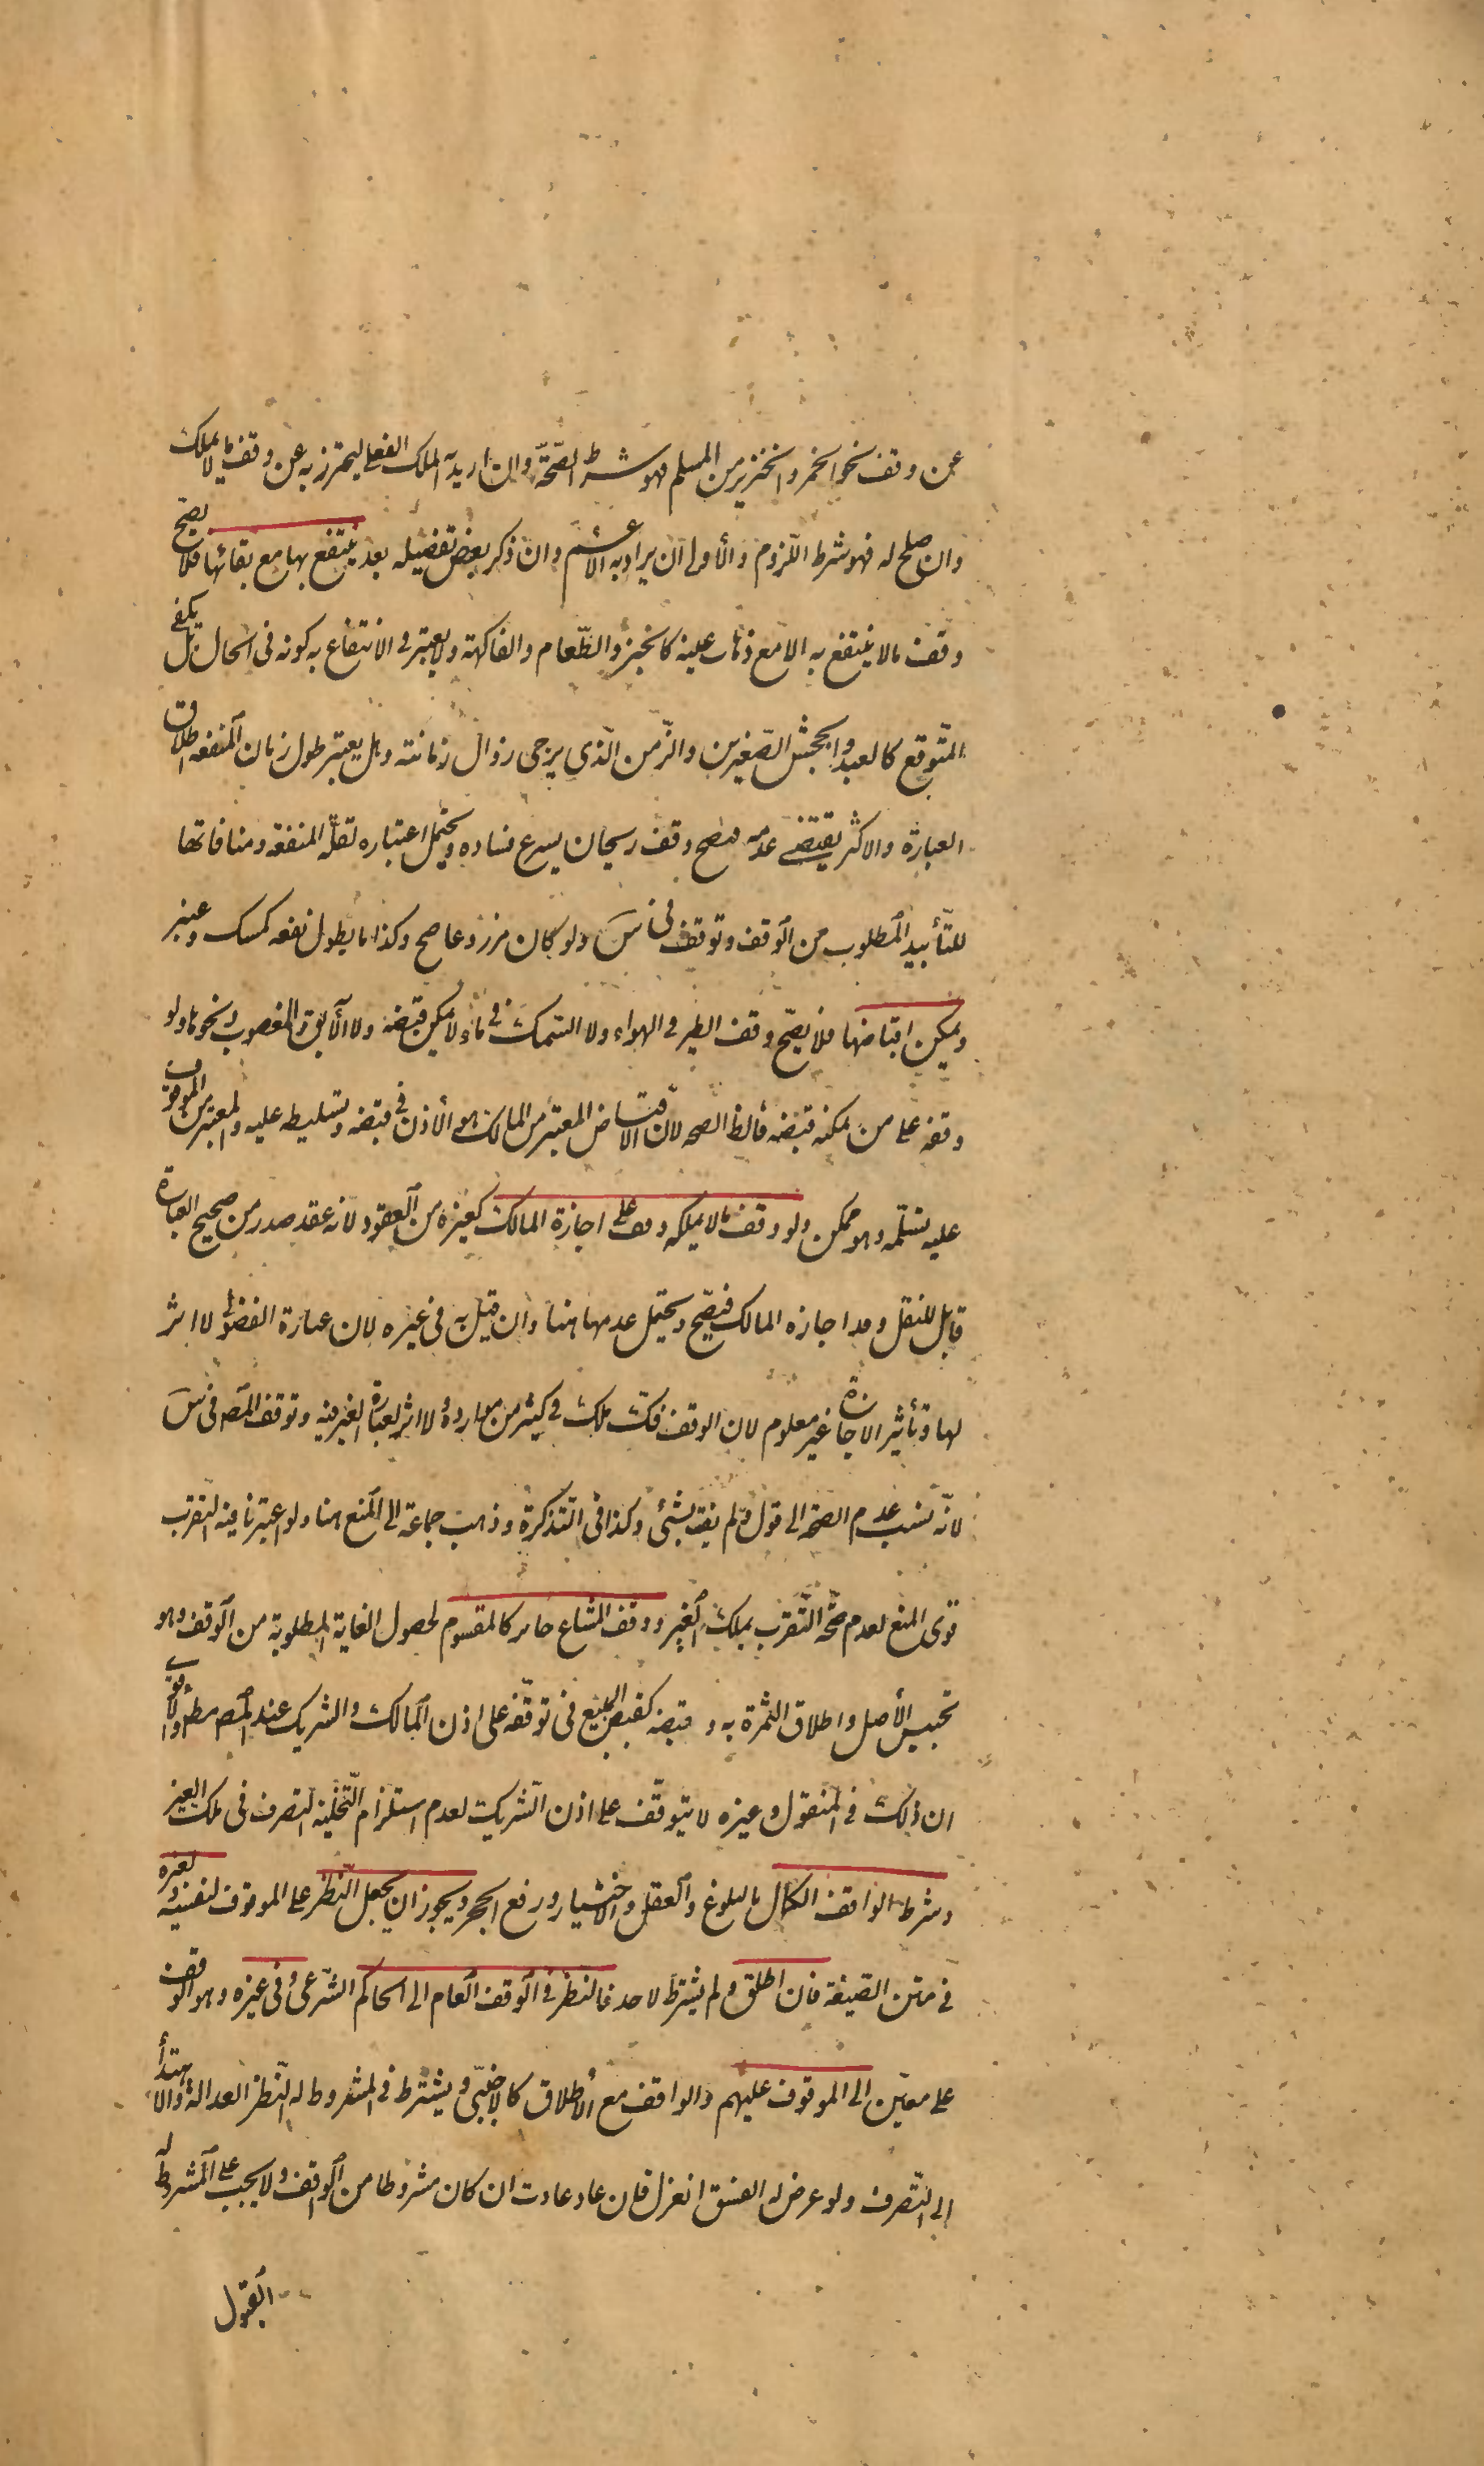 عن وقف نحو الخمر والخنزير من المسلم فهو شرط الصحّة وان اريد به الملك الفعلى ليحترز به عن وقف ما لا يملك
وان صلح له فهو شرط اللزوم والأولى أن يراد به الأعم وان ذكر بعض تفصيله بعد ينتفع بها مع بقائها فلا يصح
وقف ما لا ينتفع به الا مع ذهاب عينه كالخبز والطّعام والفاكهة ولا يعتبر فى الانتفاع به كونه فى الحال بل يكفى
المتوقع كالعبد والجحش الصّغيرين والزّمن الّذى يرجى زوال زمانته وهل يعتبر طول زمان المنفعه اطلاق
العبارة والاكثر يقتضى عدمه فيصح وقف ريحان يسرع فساده ويحتمل اعتباره لقلّة المنفعة ومنافاتها
للتأبيد المطلوب من الوقف وتوقف فى س ولو كان مزروعا صح وكذا ما يطول نفعه كمسك وعنبر
ويمكن اقباضها فلا يصحّ وقف الطير فى الهواء ولا السّمك فى ماء لا يمكن قبضه ولا الآبق والمغصوب ونحوها ولو
وقفه على من يمكنه قبضه فالظ الصحه لان الاقباض المعتبر من المالك هو الأذن فى قبضه وتسليطه عليه والمعتبر من الموقوف
عليه تسلمه وهو ممكن ولو وقف ما لا يملكه وقف على اجازة المالك كغيره من العقود لانه عقد صدر من صحيح العبارة
قابل للنقل وقد اجازه المالك فيصحّ ويحتمل عدمها هنا وان قيل به فى غيره لان عبارة الفضولى لا اثر
لها وتأثير الاجازة غير معلوم لان الوقف فكّ ملك فى كثير من موارده ولا اثر لعبارة الغير فيه وتوقف المص فى س
لانّه نسب عدم الصحة الى قول ولم يفت بشئ وكذا فى التذكرة وذهب جماعة الى المنع هنا ولو اعتبرنا فيه التقرب
قوى المنع لعدم صحّة التّقرب بملك الغير ووقف المشاع جايز كالمقسوم لحصول الغاية المطلوبة من الوقف وهو
تحبيس الأصل واطلاق الثمرة به وقبضه كقبض المبيع فى توقّفه على اذن المالك والشريك عند المص مط والاقوى
ان ذلك فى المنقول وغيره لا يتوقف على اذن الشريك لعدم استلزام التّخلية التصرف فى ملك الغير
وشرط الواقف الكمال بالبلوغ والعقل والاختيار ورفع الحجر ويجوز ان يجعل النّظر على الموقوف لنفسه ولغيره
فى متن الصّيغة فان اطلق ولم يشترط لاحد فالنظر فى الوقف العام الى الحاكم الشرعىّ وفى غيره وهو الوقف
على معيّن الى الموقوف عليهم والواقف مع الأطلاق كالاجنبىّ ويشترط فى المشروط له النظر العدالة والاهتدأ
الى التصرف ولو عرض له الفسق انعزل فان عاد عادت ان كان مشروطا من الواقف ولا يجب على المشروط له
القبول